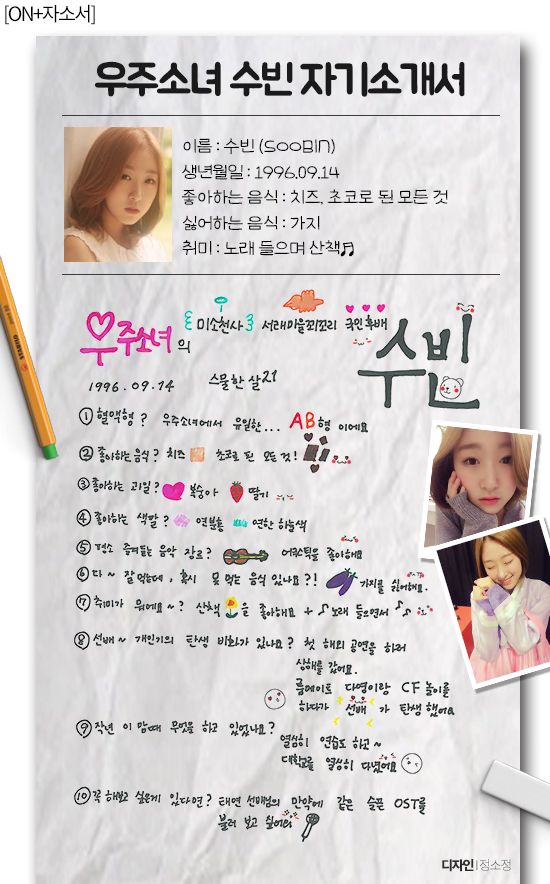 [ON+자소서]
우주소녀 수빈 자기소개서
이름 : 수빈 (SOOBIN)
생년월일 : 1996.09.14
좋아하는 음식 : 치즈, 초코로 된 모든 것
싫어하는 음식 : 가지
취미 : 노래 들으며 산책♬
우주소녀의 {미소천사} 서래마을꾀꼬리 국민후배 수빈
1996.09.14 스물한 살 21
① 혈액형? 우주소녀에서 유일한... AB형 이에요
② 좋아하는 음식? 치즈 초코로 된 모든 것!
③ 좋아하는 과일? 복숭아 딸기
④ 좋아하는 색깔? 연분홍 연한 하늘색
⑤ 평소 즐겨듣는 음악 장르? 어쿠스틱을 좋아해요
⑥ 다~ 잘 먹는데, 혹시 못 먹는 음식 있나요?! 가지를 싫어해요.
⑦ 취미가 뭐에요~? 산책을 좋아해요 + ♪노래 들으면서 ♪♪
⑧ 선배~ 개인기의 탄생 비화가 있나요? 첫 해외 공연을 하러
상해를 갔어요.
룸메이트 다영이랑 CF 놀이를
하다가 선배 가 탄생했어요
⑨ 작년 이 맘때 무엇을 하고 있었나요?
열심히 연습도 하고~
대학교를 열심히 다녔어요
⑩ 꼭 해보고 싶은게 있다면? 태연 선배님의 만약에 같은 슬픈 OST를
불러 보고 싶어요
디자인 | 정소정